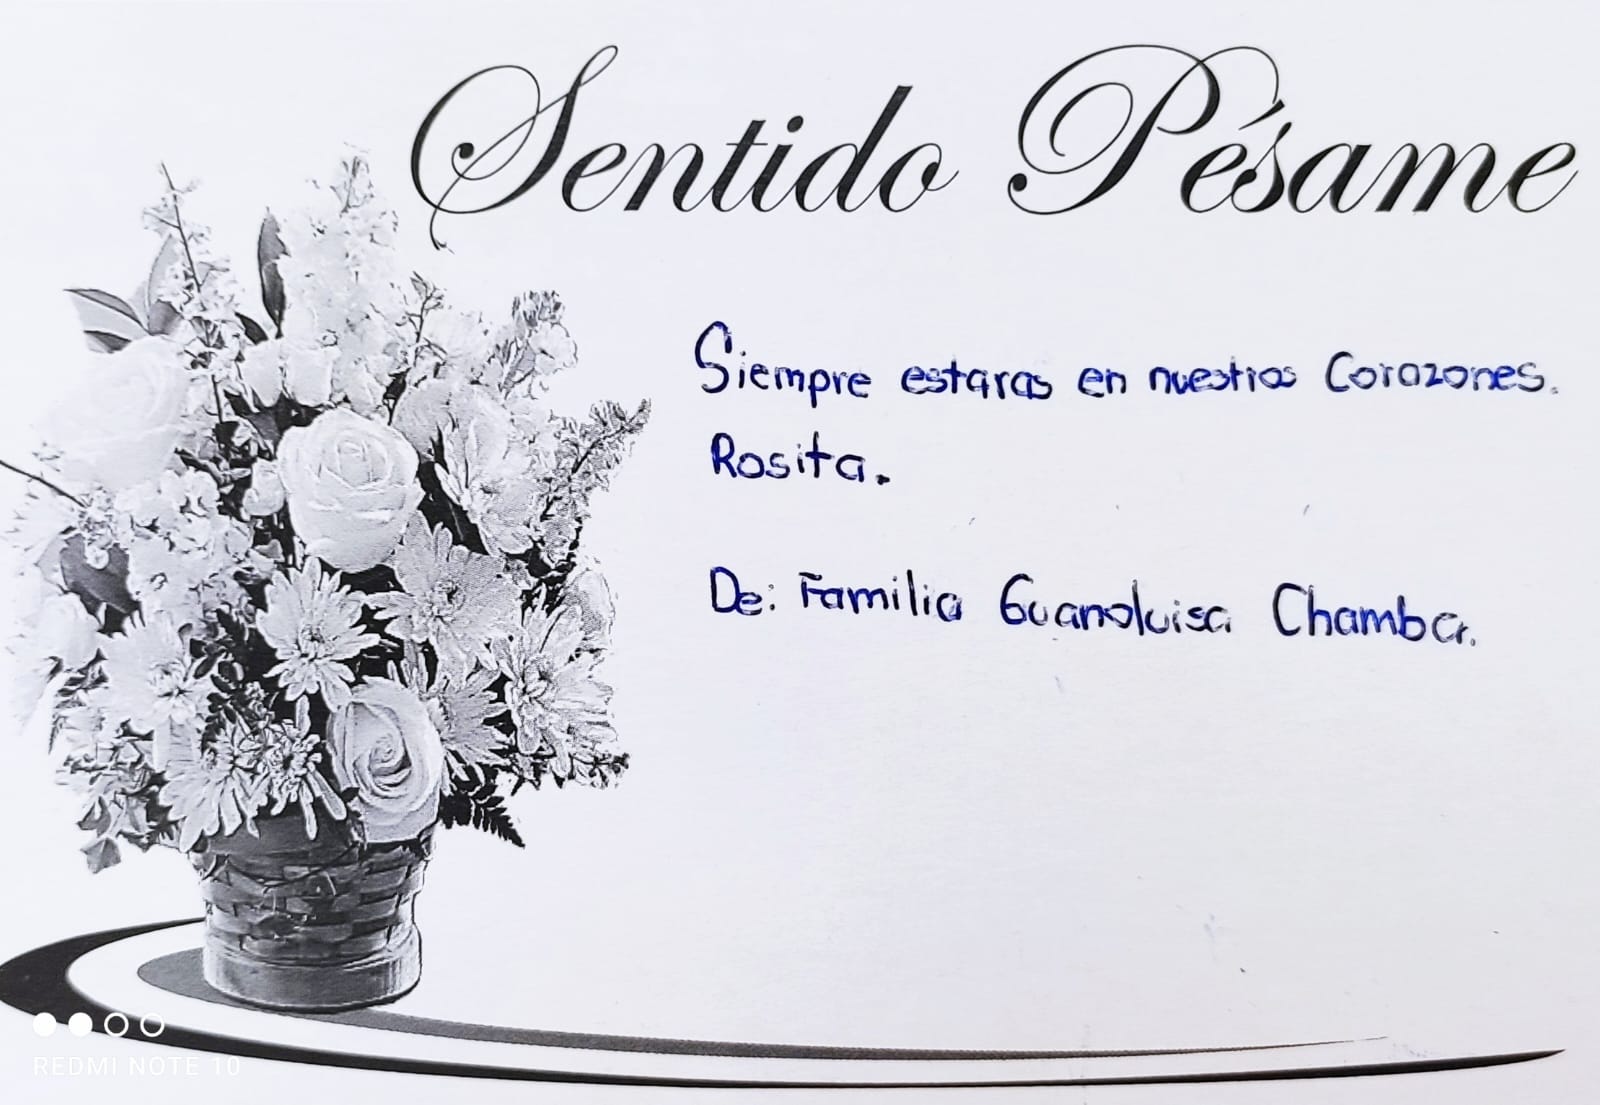 Sentido Pésame
Siempre estaras en nuestros Corazones.
Rosita.
De: Familia Guanoluisa Chamba.
REDMI NOTE 10